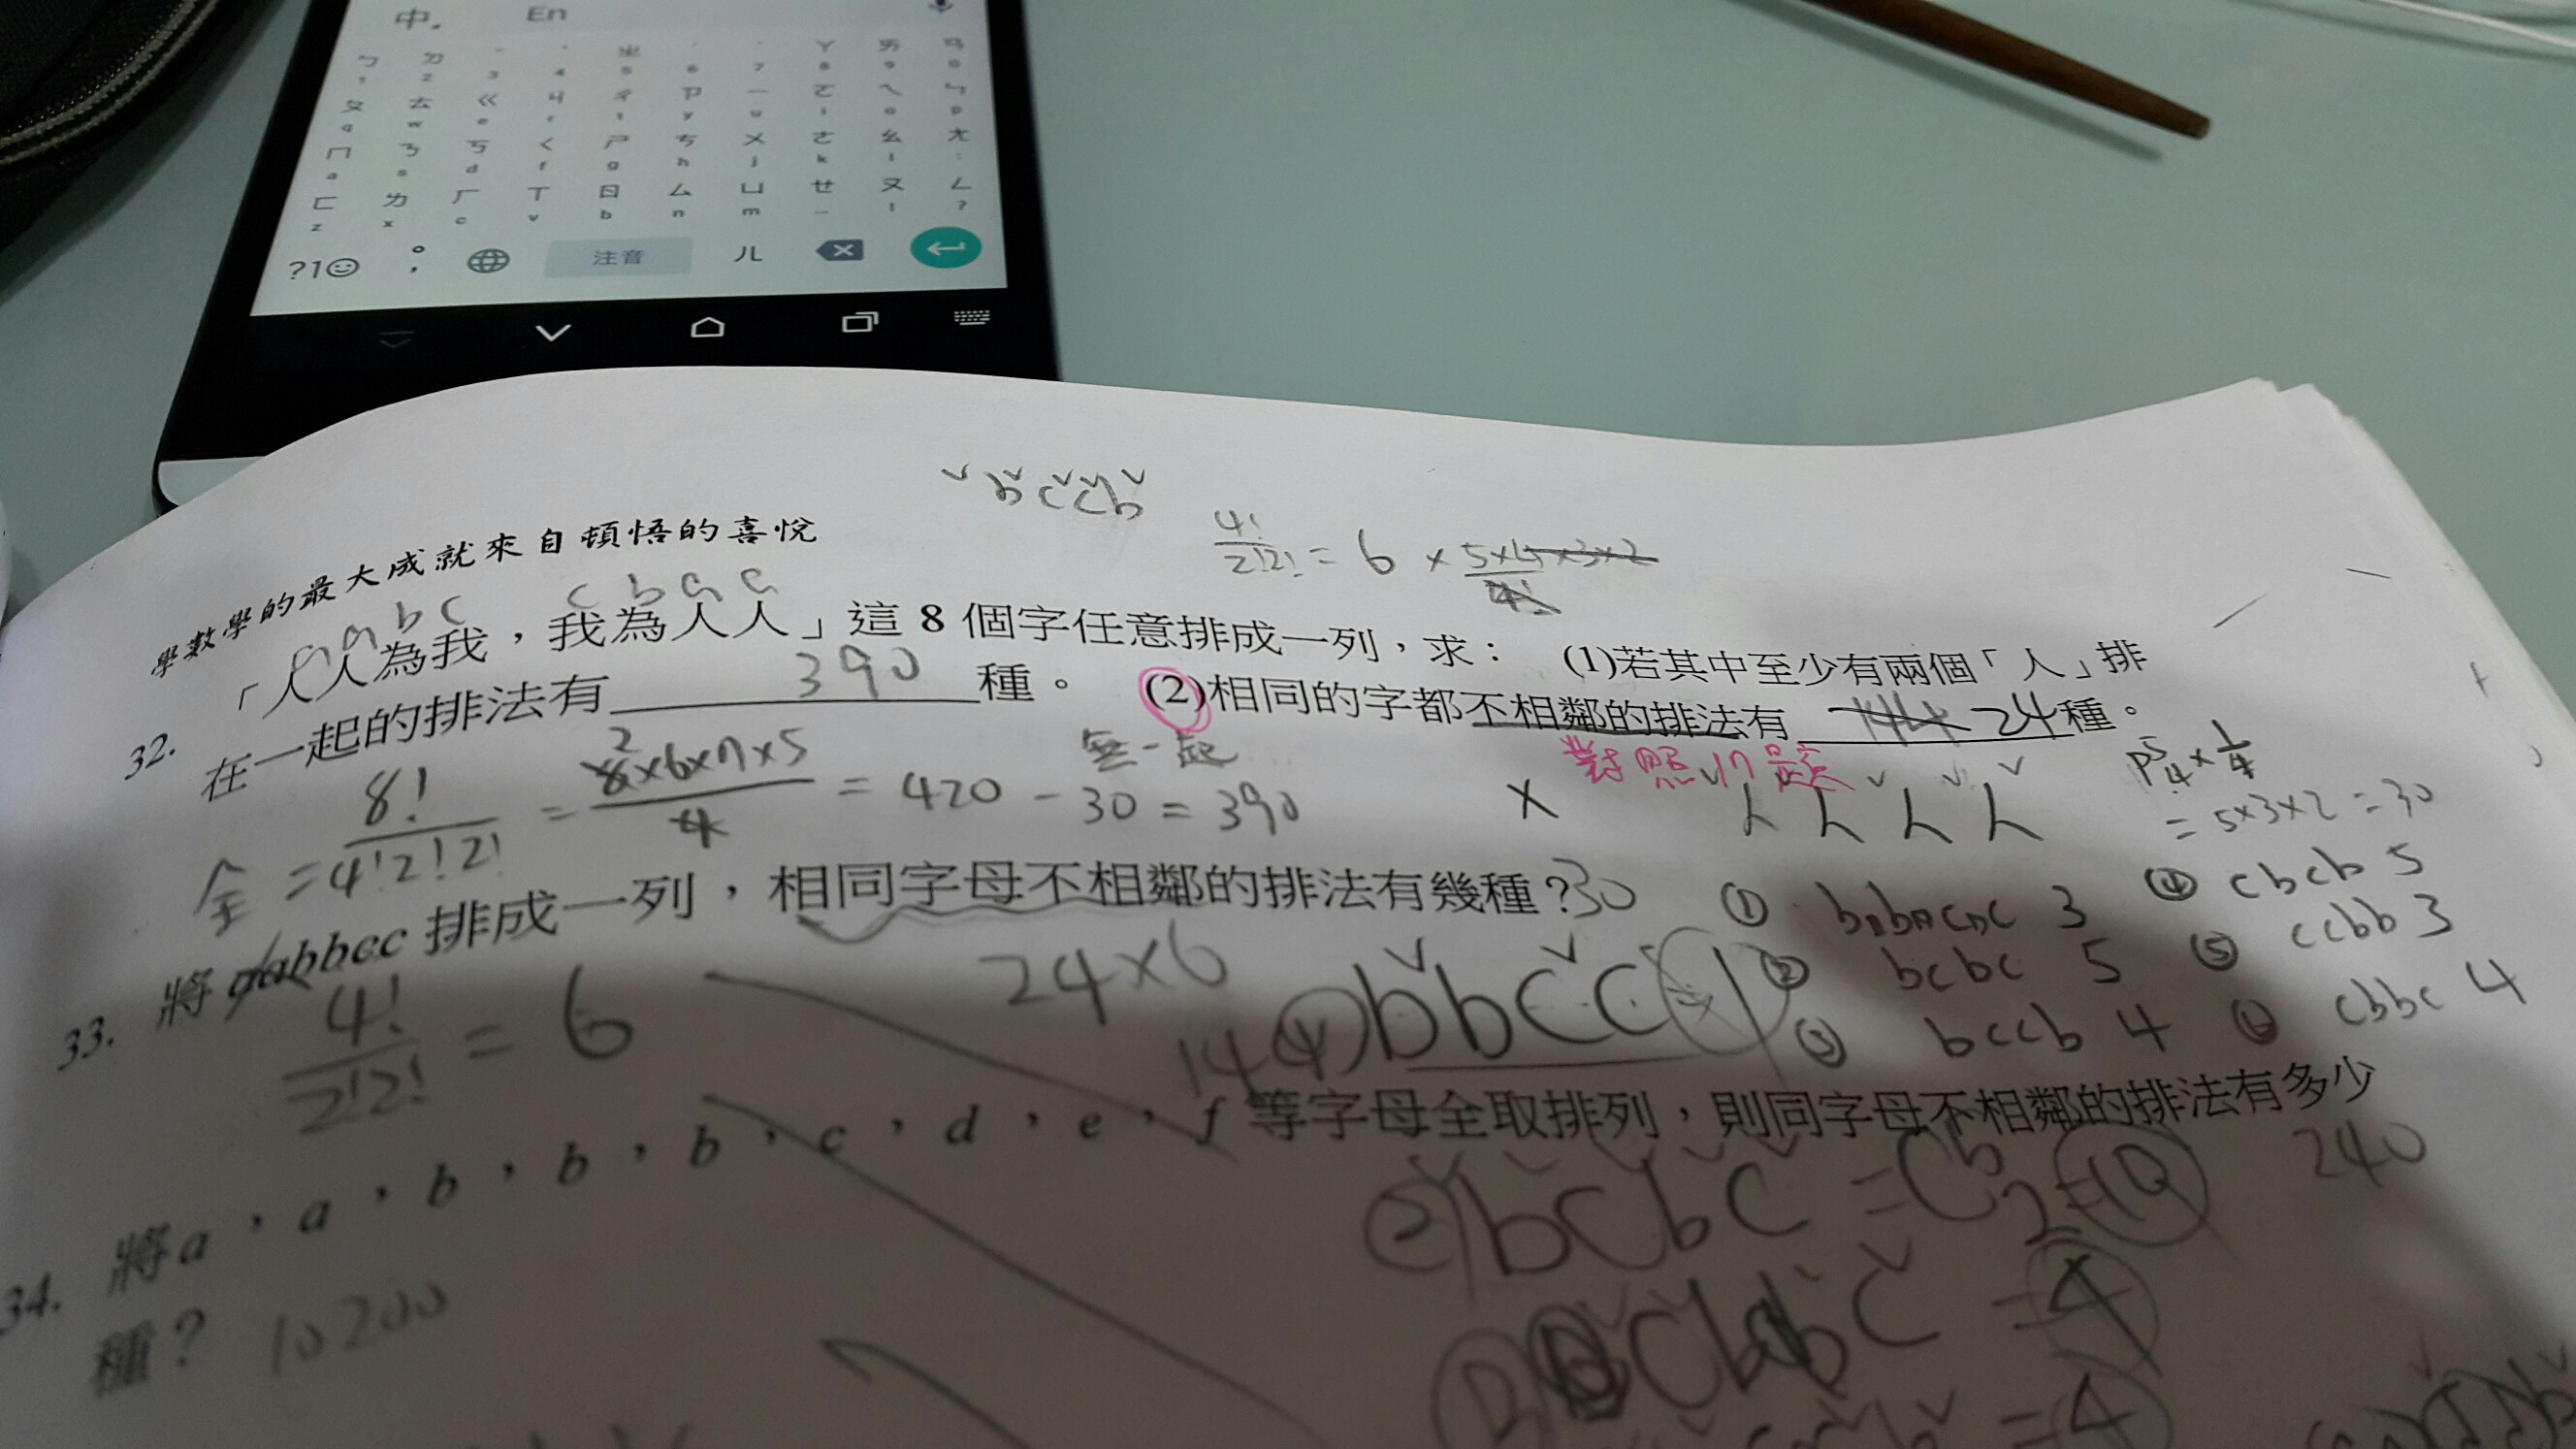 中。 En
ㄅ ㄉ ˇ ˋ ㄓ ˊ ˙ ㄚ ㄞ ㄢ
1 2 3 4 5 6 7 8 9 0
ㄆ ㄊ ㄍ ㄐ ㄔ ㄗ ㄧ ㄛ ㄟ ㄣ
q w e r t y u i o p
ㄇ ㄋ ㄎ ㄑ ㄕ ㄘ ㄨ ㄜ ㄠ ㄤ
a s d f g h j k l :
ㄈ ㄌ ㄏ ㄒ ㄖ ㄙ ㄩ ㄝ ㄡ ㄥ
z x c v b n m ... ! ?
?1☺ °, 注音 ㄦ
bccb
4!/2!2! = 6 × 5×4×3×2/4!
學數學的最大成就來自頓悟的喜悅
a a b c c b a a
32. 「人人為我，我為人人」這 8 個字任意排成一列，求： (1)若其中至少有兩個「人」排
在一起的排法有 390 種。 (2)相同的字都不相鄰的排法有 144 24 種。
對照17題
全 = 8!/4!2!2! = 8×6×7×5/4 = 420 - 30 = 390
無一起
× 人人人人
P⁵₄ × 1/4
= 5×3×2 = 30
33. 將 aabbcc 排成一列，相同字母不相鄰的排法有幾種? 30
4!/2!2! = 6
24×6
144
① bbcc 3 ④ cbcb 5
② bcbc 5 ⑤ ccbb 3
③ bccb 4 ⑥ cbbc 4
bbcc 1
34. 將a，a，b，b，b，c，d，e，f 等字母全取排列，則同字母不相鄰的排法有多少
種？ 10200
240
② bcbc = C 2 = 10
= 4
= 4